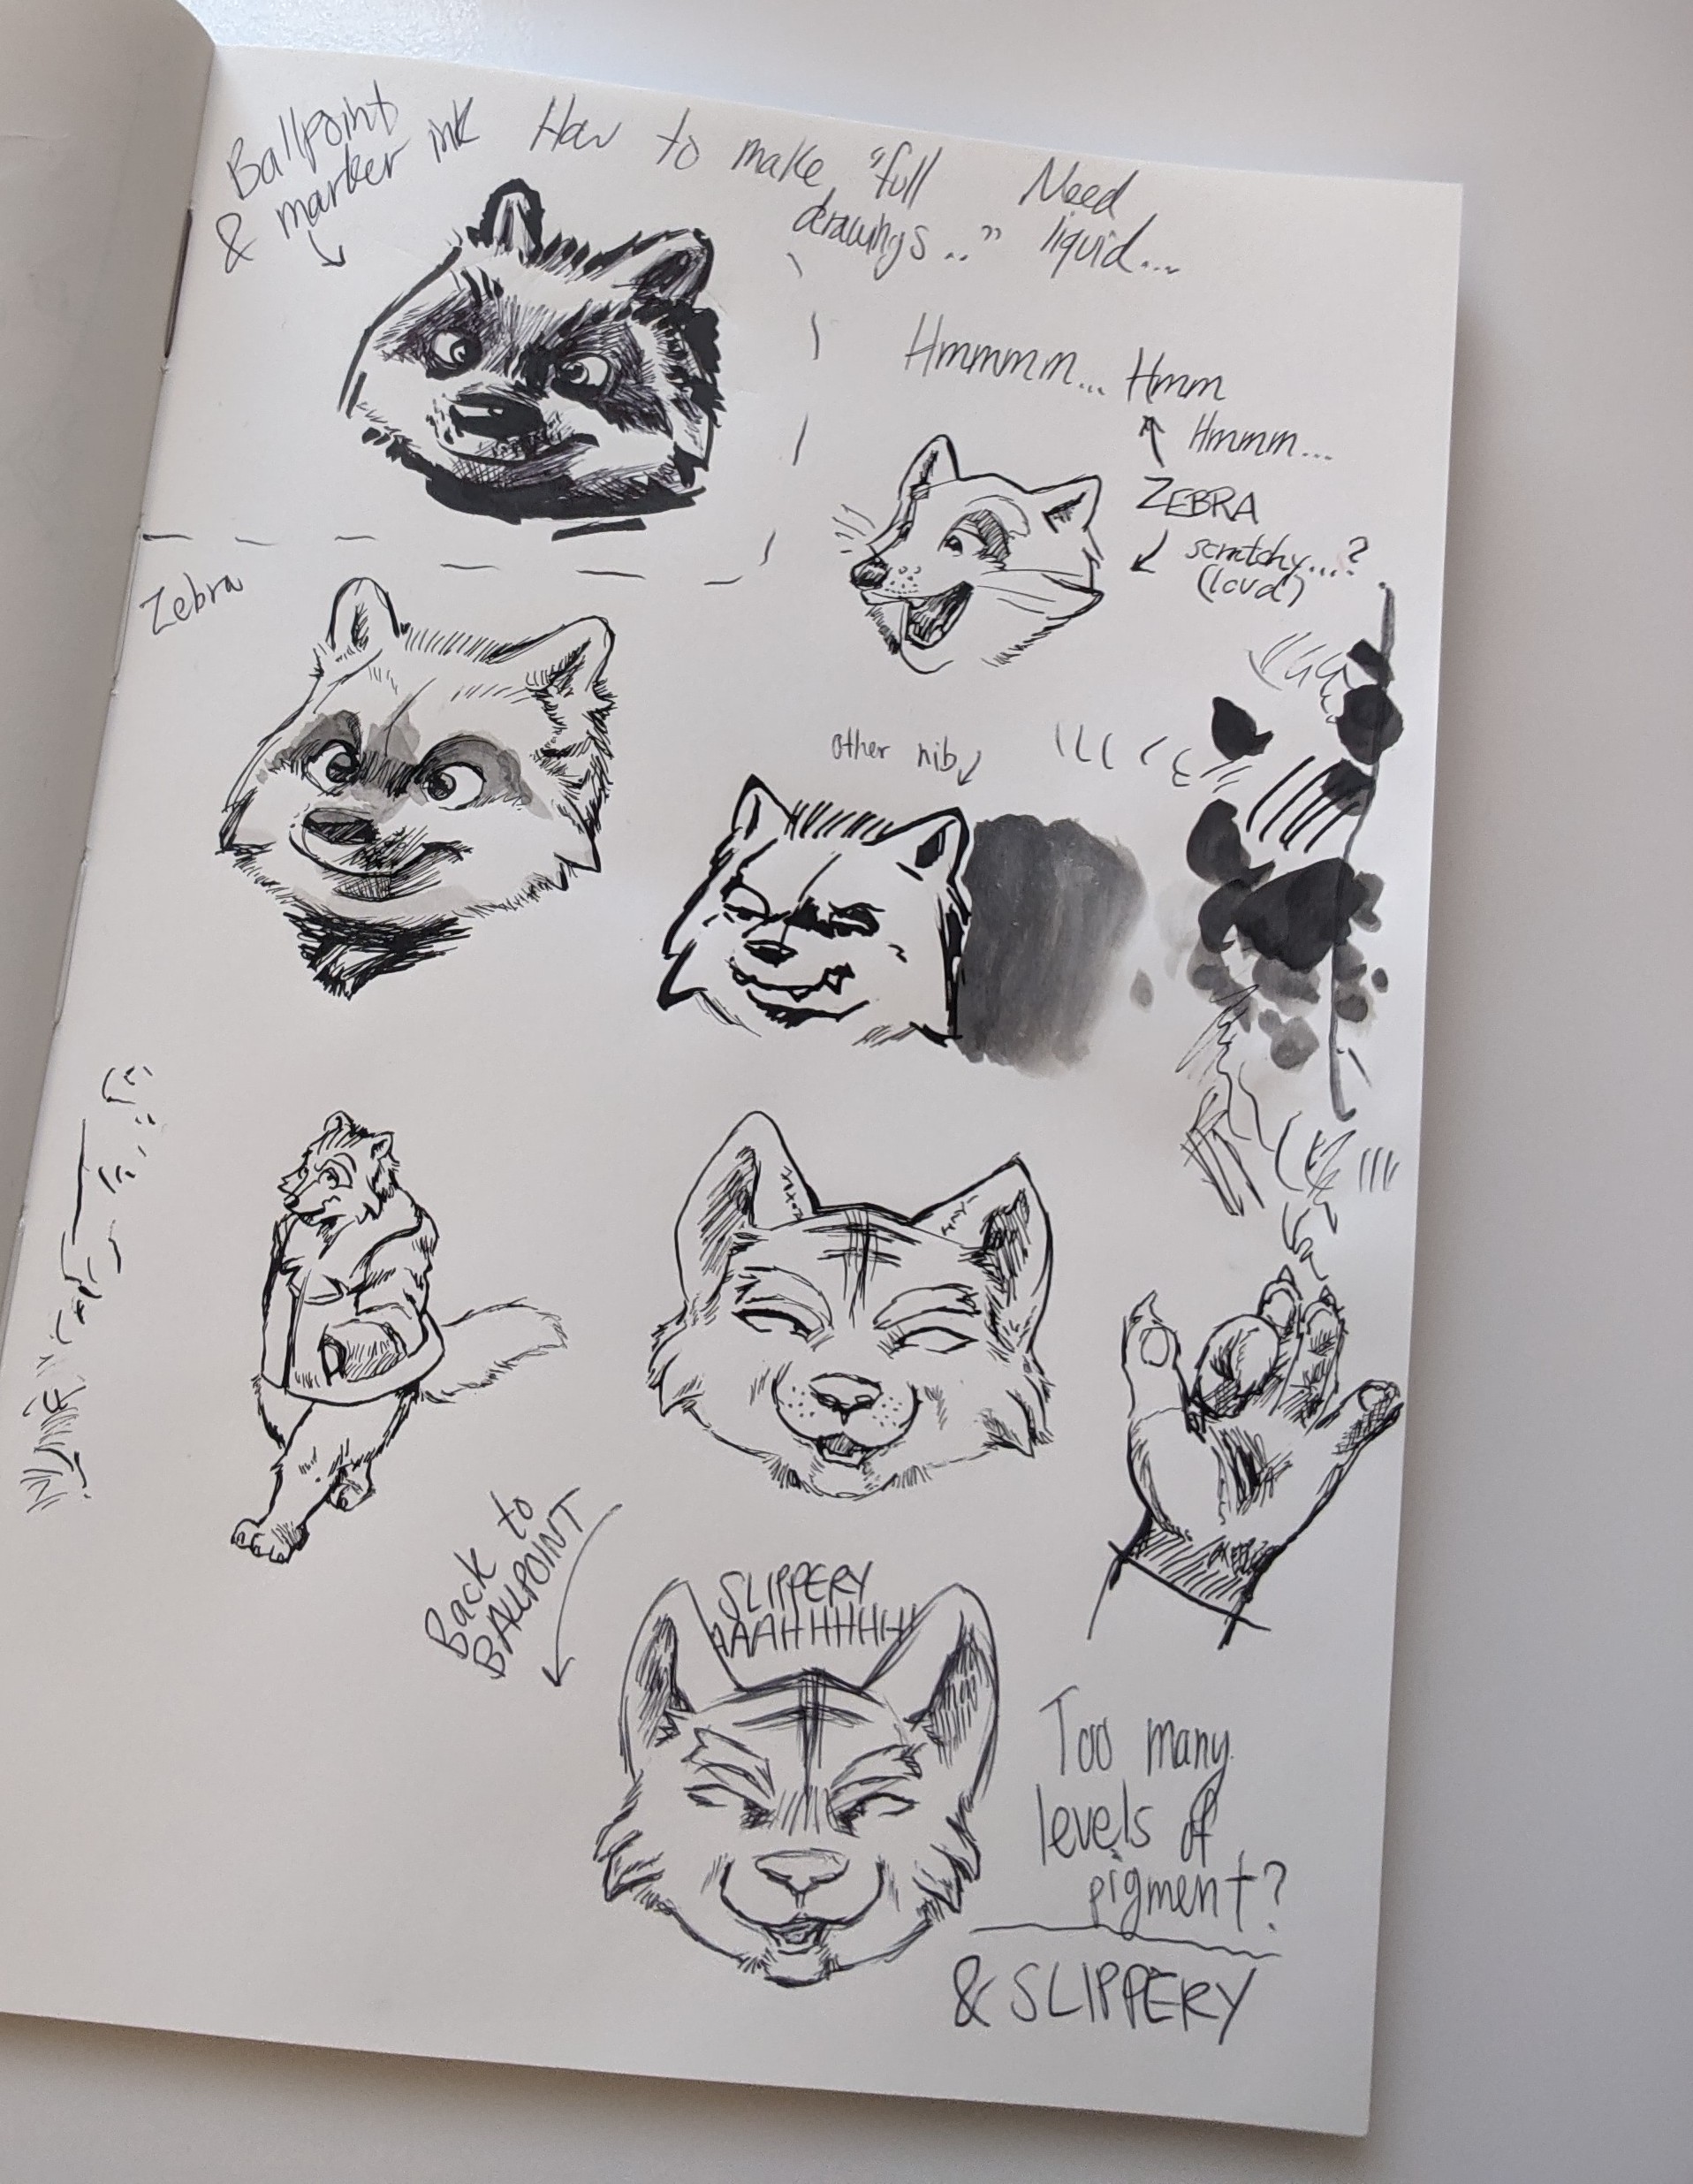 Ballpoint
& marker ink
How to make "full
drawings.."
Need
liquid...
Hmmmm... Hmm
Hmmm...
ZEBRA
scratchy...?
(loud)
Zebra
other nib
Back to
BALLPOINT
SLIPPERY
AAAHHHHH
Too many
levels of
pigment?
& SLIPPERY